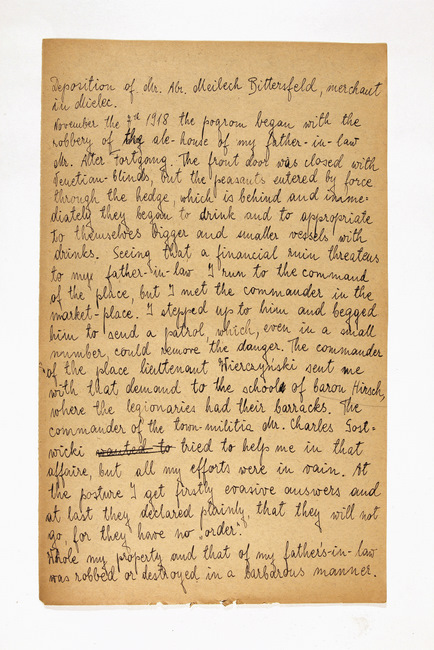 Deposition of Mr. Abr. Meilech Bittersfeld, merchant
in Mielec.
November the 7th 1918 the pogrom began with the
robbery of the ale-house of my father-in-law
Mr. Alter Fortgang. The front door was closed with
Venetian-blinds, but the peasants entered by force
through the hedge, which is behind and imme-
diately they began to drink and to appropriate
to themselves bigger and smaller vessels with
drinks. Seeing that a financial ruin threatens
to my father-in-law I run to the command
of the place, but I met the commander in the
market-place. I stepped up to him and begged
him to send a patrol, which, even in a small
number, could remove the danger. The commander
of the place lieutenant Wierczyński sent me
with that demand to the school of baron Hirsch,
where the legionaries had their barracks. The
commander of the town-militia Mr. Charles Gost-
wicki wanted to tried to help me in that
affaire, but all my efforts were in vain. At
the posture I get firstly evasive answers and
at last they declared plainly, that they will not
go, for they have no "order".
Whole my property and that of my father's-in-law
was robbed or destroyed in a barbarous manner.